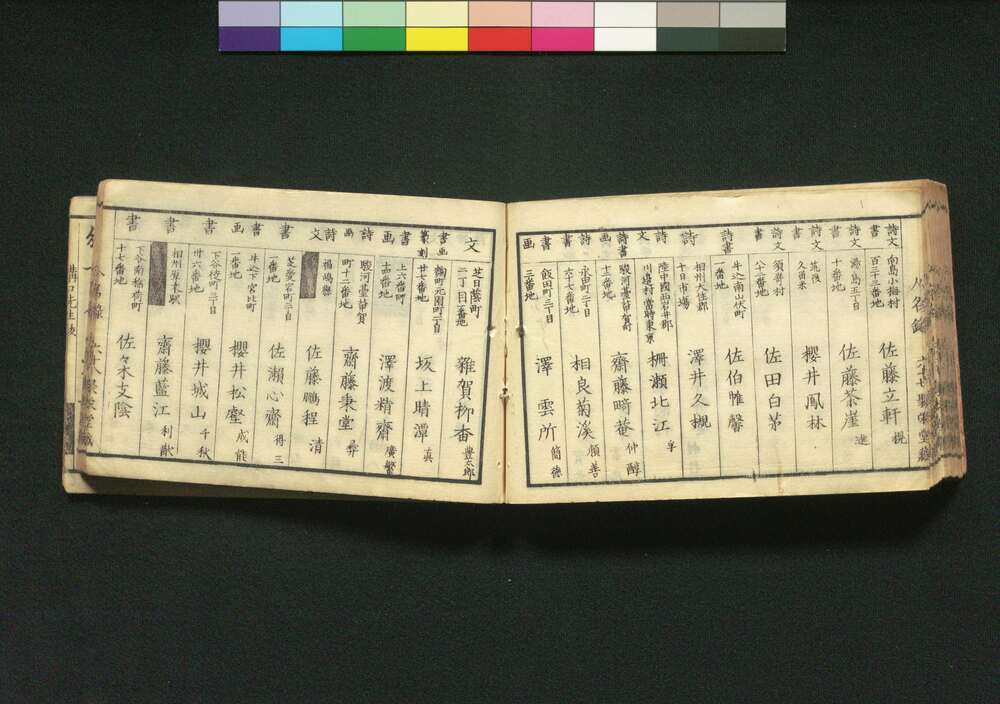 詩文書
向島小梅村
百二十三番地
佐藤立軒
詩文書
湯島五丁目
十番地
佐藤茶崖
詩文書
筑後
久留米
櫻井鳳林
詩文書
須嵜村
八十二番地
佐田白茅
詩書
牛込南山伏町
一番地
佐伯惟馨
詩
相州大住郡
十日市場
澤井久槻
詩文
陸中國西岩井郡
川邊村 當時東京
柵瀬北江
詩書
駿河臺甲賀町
十二番地
齋藤畸菴
詩書
永田町二丁目
六十七番地
相良菊溪 願善
書画
飯田町二丁目
三番地
澤雲所 簡德
文
芝日蔭町
二丁目一番地
雜賀柳香 豊太郎
書画篆刻
麹町元園町二丁目
廿七番地
坂上晴潭 真
書画
上六番町
十四番地
澤渡精齋 廣繁
詩画
駿河臺甲賀
町十二番地
齋藤東堂 尋
詩文
福嶋縣
佐藤鵬程 清
書
芝愛宕町二丁目
一番地
佐瀬心齋 得三
書画
牛込下宮比町
一番地
櫻井松壑 成能
書
下谷徒町二丁目
廿六番地
櫻井城山 千秋
書
相州厚木駅
齋藤藍江 利猷
書
下谷南稲荷町
十七番地
佐々木支陰